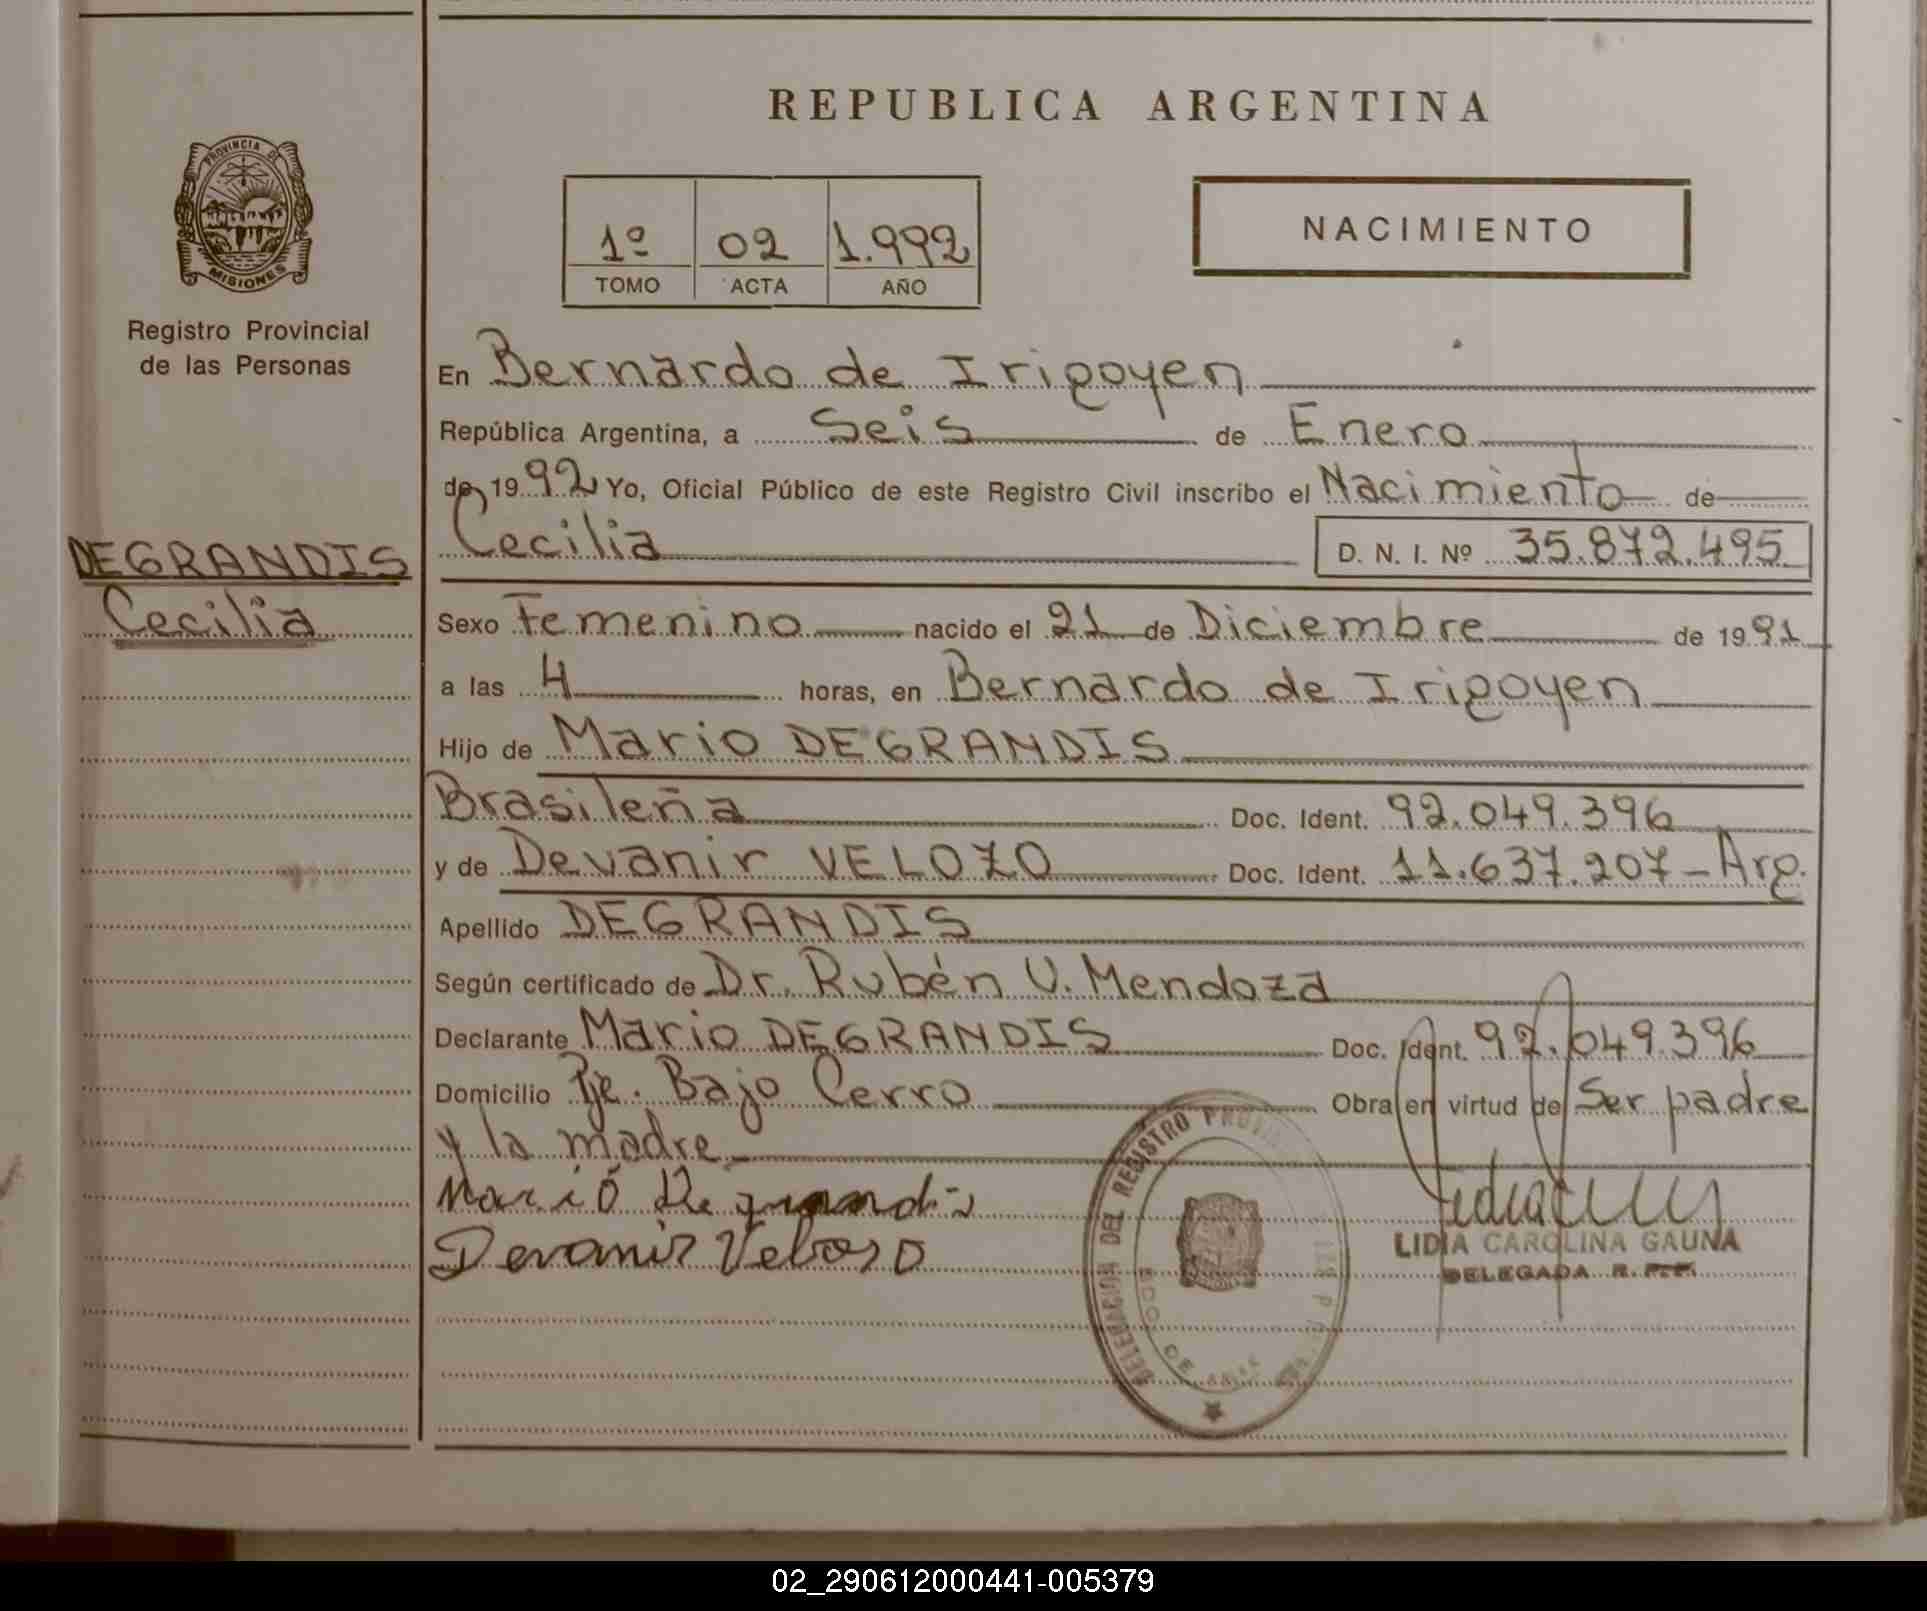 REPUBLICA ARGENTINA
PROVINCIA DE
MISIONES
Registro Provincial
de las Personas
1º 02 1.992
TOMO ACTA AÑO
NACIMIENTO
En Bernardo de Irigoyen
República Argentina, a Seis de Enero
de 1992 Yo, Oficial Público de este Registro Civil inscribo el Nacimiento de
Cecilia D. N. I. Nº 35.872.495
DEGRANDIS
Cecilia
Sexo Femenino nacido el 21 de Diciembre de 1991
a las 4 horas, en Bernardo de Irigoyen
Hijo de Mario DEGRANDIS
Brasileña Doc. Ident. 92.049.396
y de Devanir VELOZO Doc. Ident. 11.637.207-Arg.
Apellido DEGRANDIS
Según certificado de Dr. Rubén V. Mendoza
Declarante Mario DEGRANDIS Doc. Ident. 92.049.396
Domicilio Pje. Bajo Cerro Obra en virtud de Ser padre
y la madre
Mario De grandis
Devanir Velozo
DELEGACION DEL REGISTRO
LIDIA CAROLINA GAUNA
DELEGADA R.P.P.
02_290612000441-005379